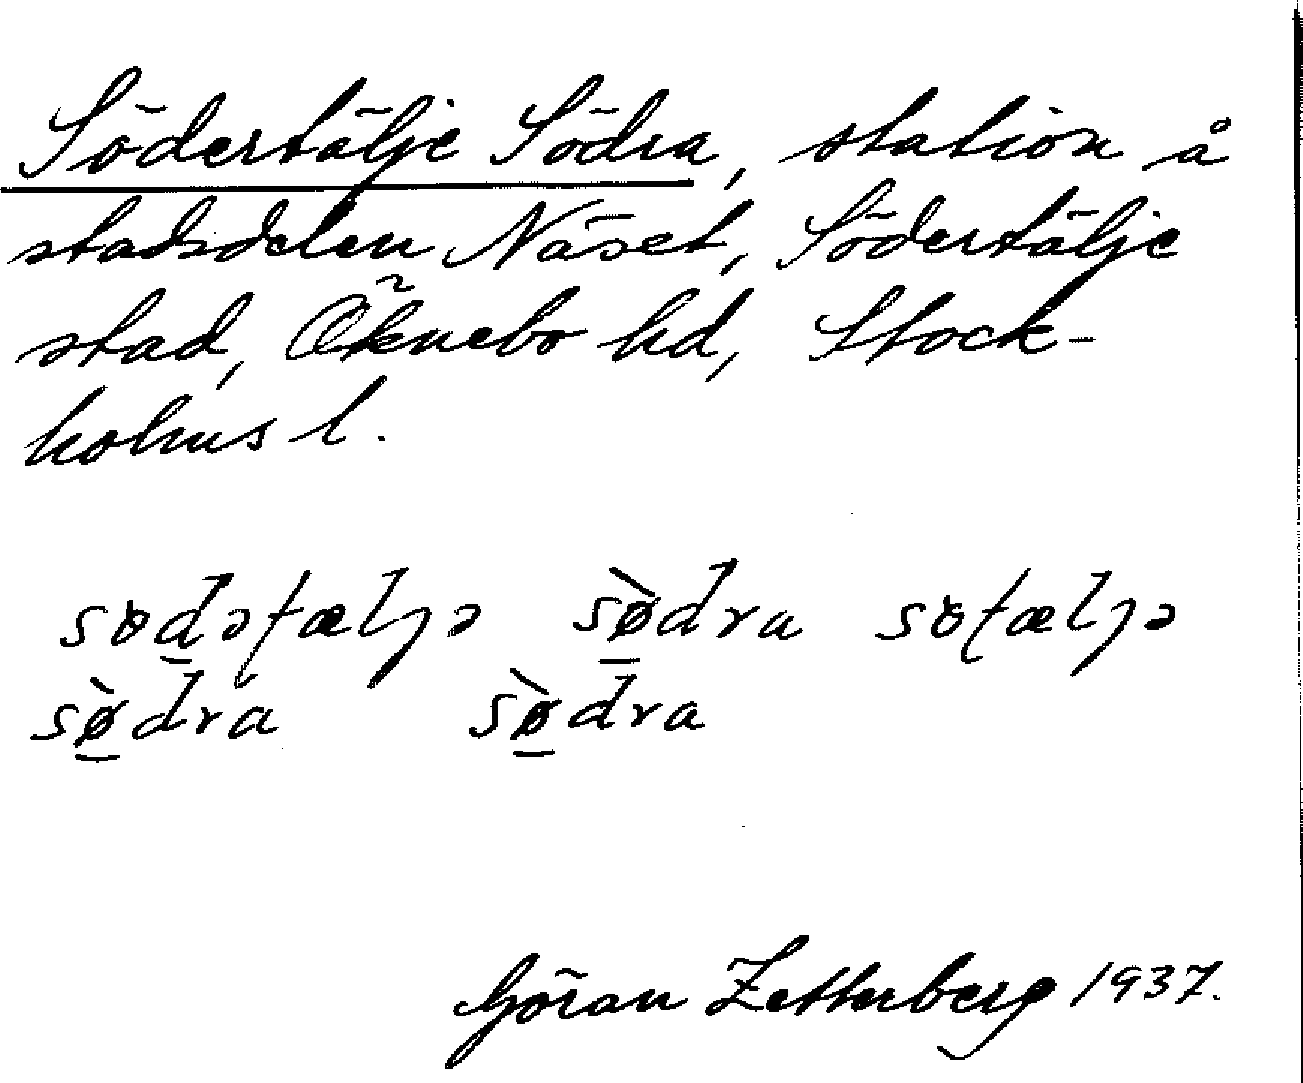 Södertälje Södra, station å
stadsdelen Näset, Södertälje
stad, Öknebo hd, Stock-
holms l.
sɵdəʈæljə sø̀dra sɵʈæljə
sø̀dra sø̀dra
Göran Zetterberg 1937.